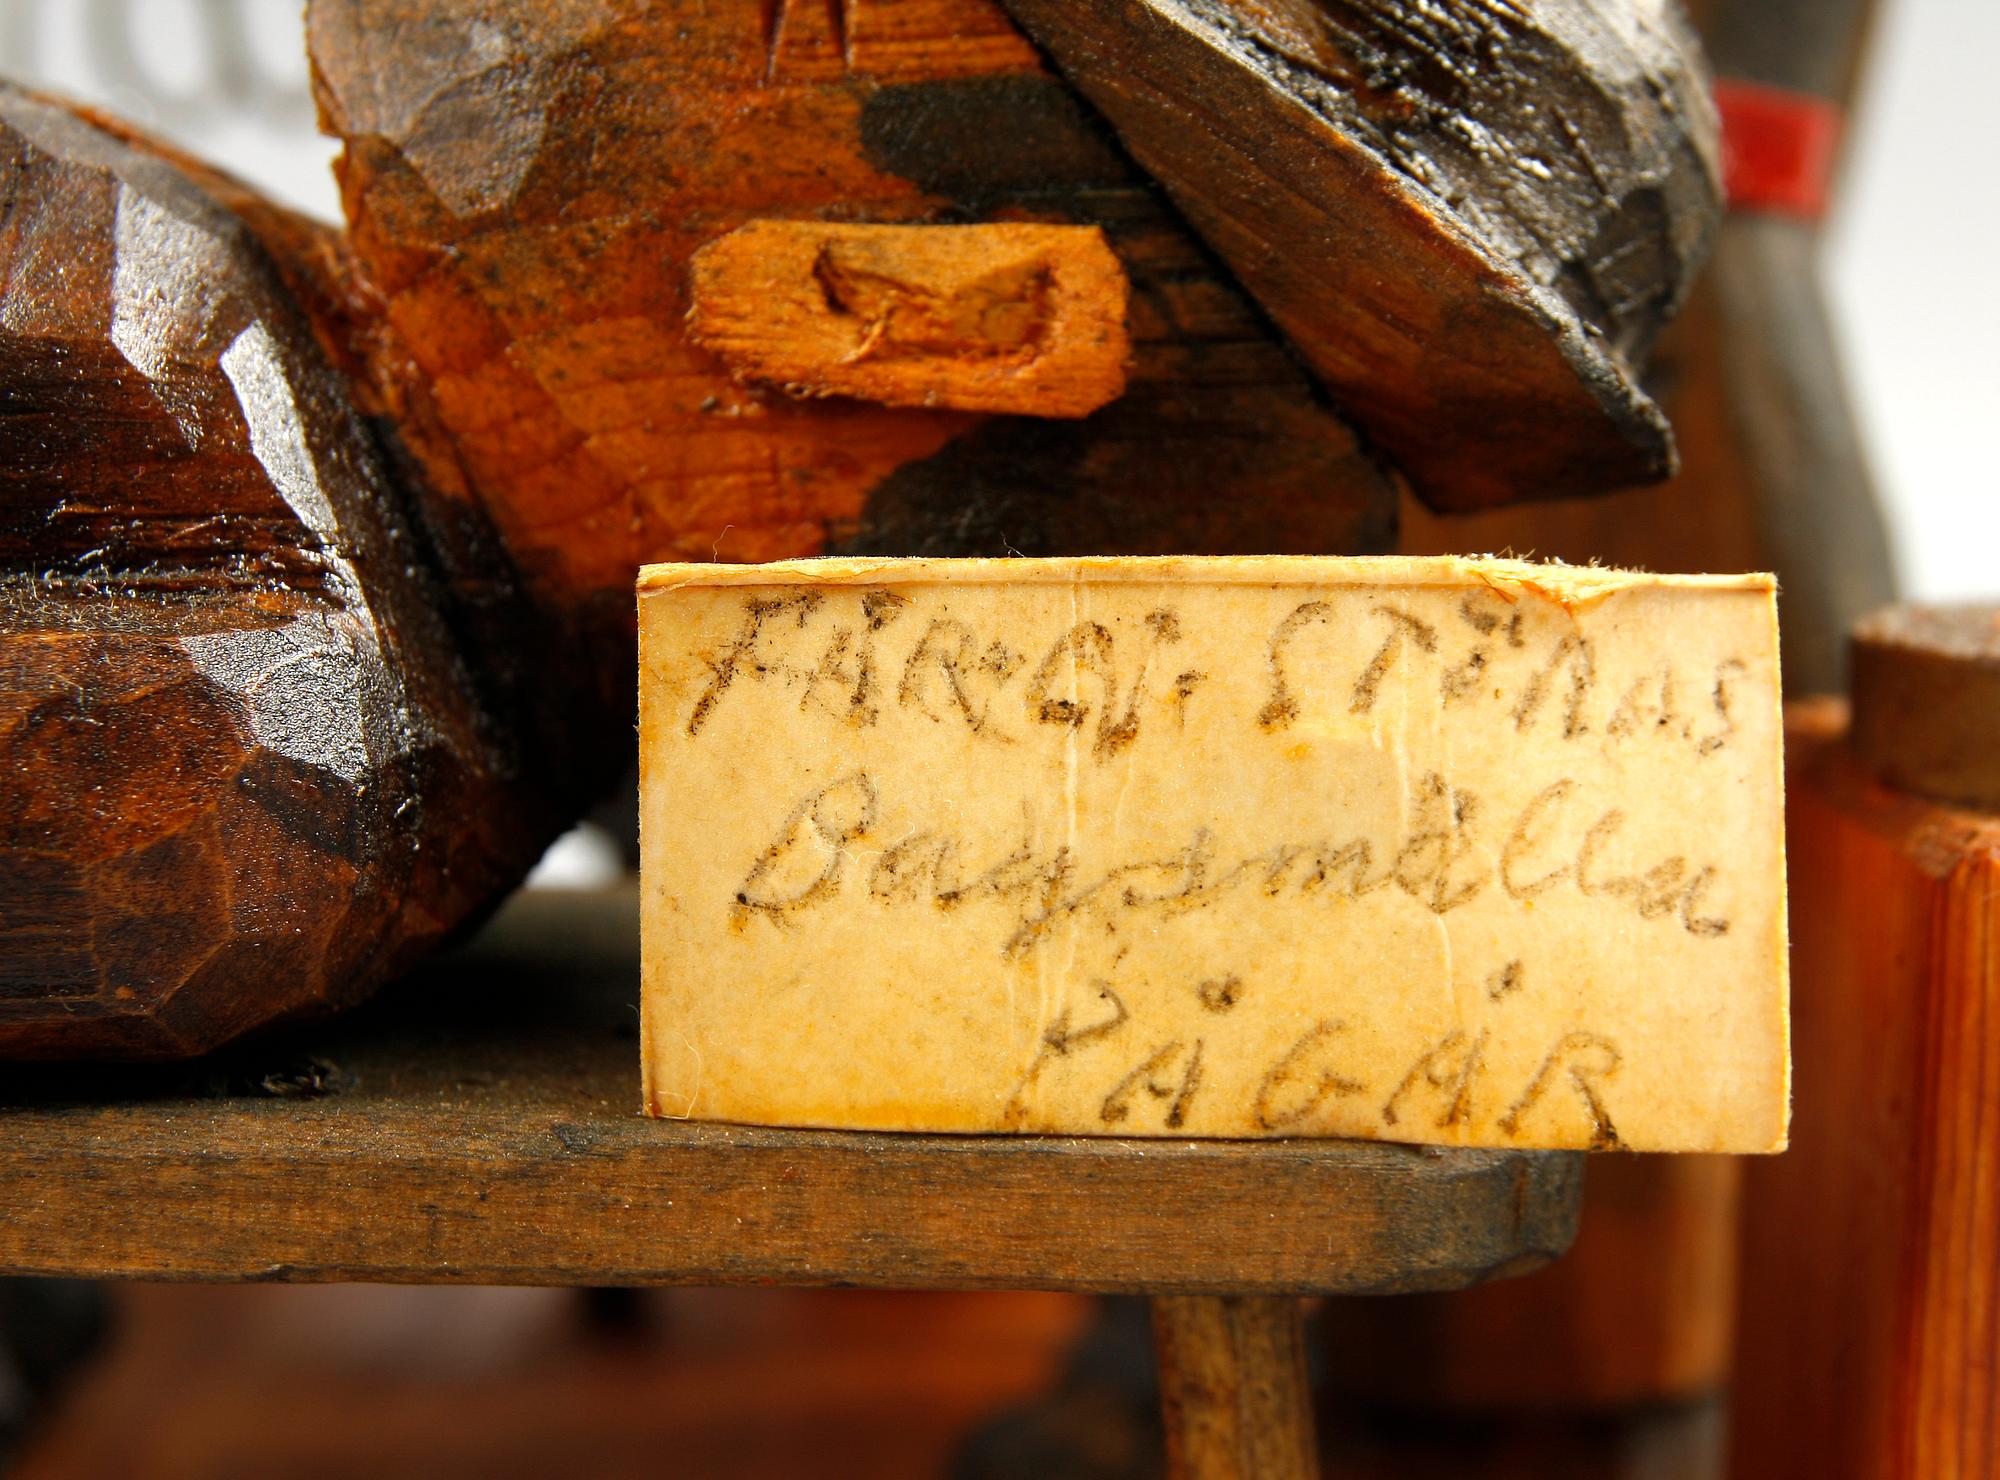 FÅR•EJ• STÖRAS
Baggmålla
PÅGÅR